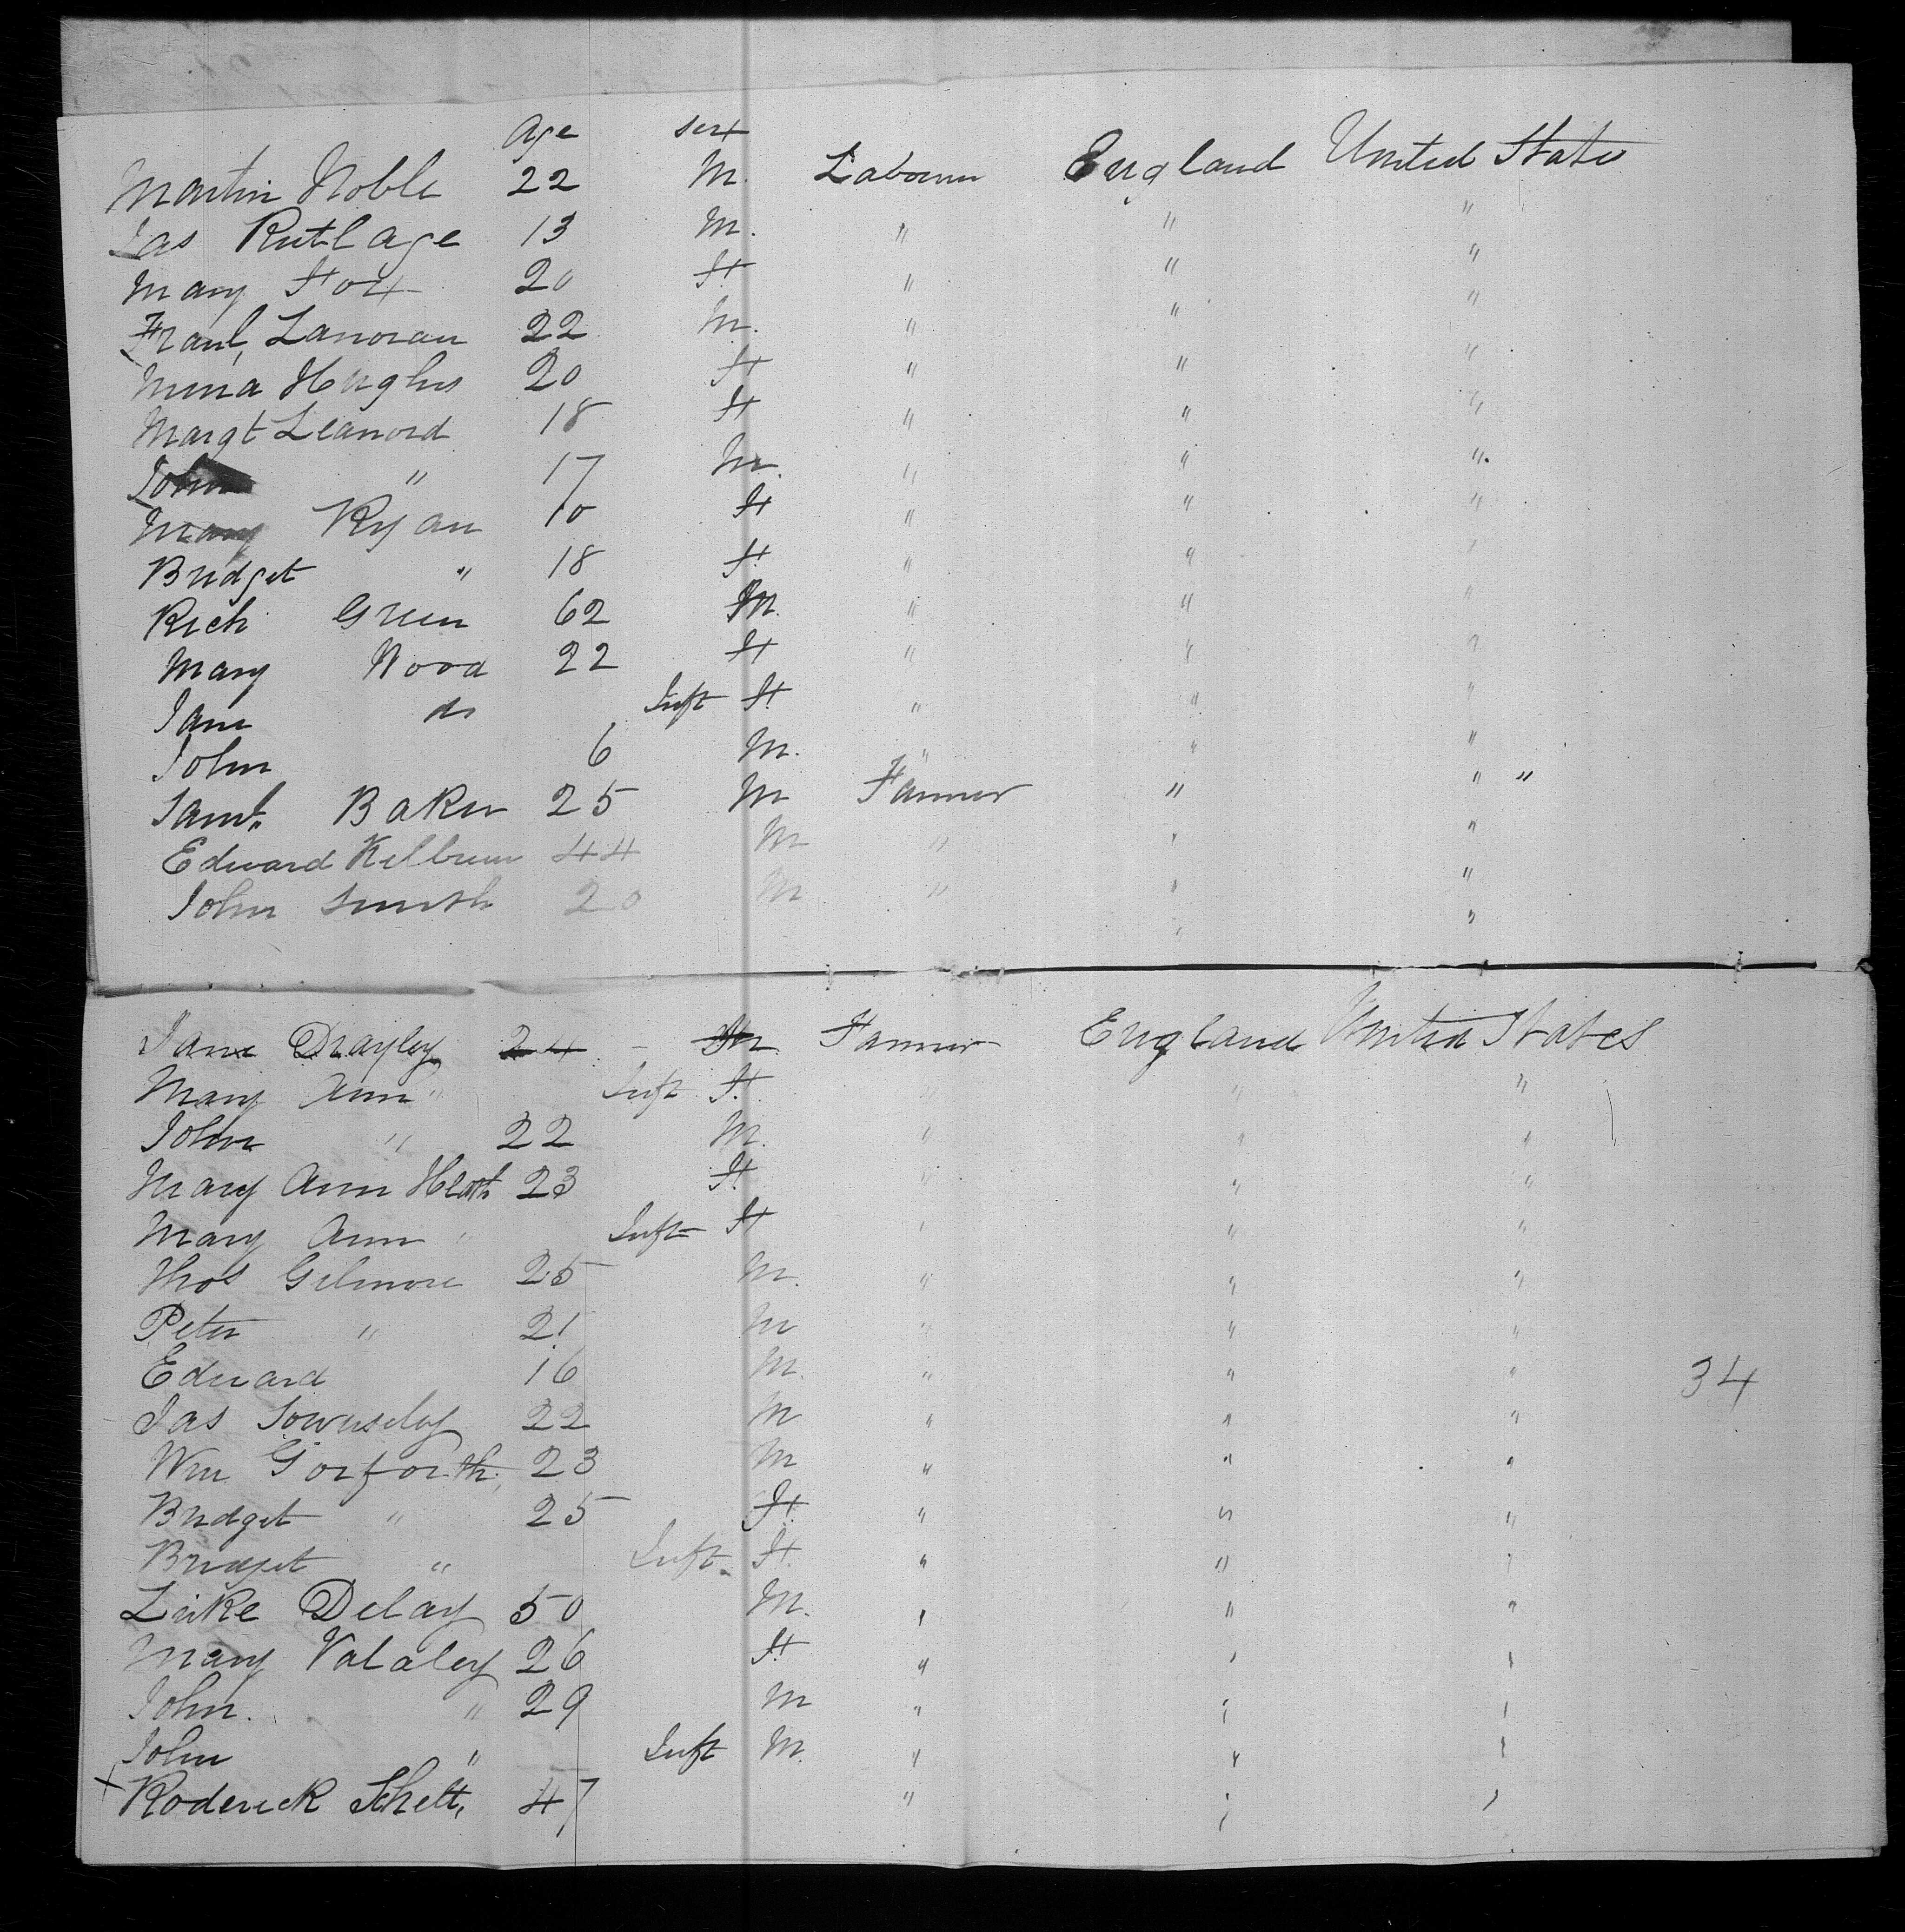 Age sex
Martin Noble 22 M. Labourer England United States
Jas Rutlage 13 M. " " "
Mary Fox 20 F " " "
Lanovan 22 M. " " "
Hughes 20 F " " "
Margt Leanord 18 F " " "
John " 17 M. " " "
Mary Ryan 10 F " " "
Bridget " 18 F " " "
Rich Green 62 M. " " "
Mary Wood 22 F " " "
Jane do Inft F " " "
John 6 M. " " "
Saml. Baker 25 M Farmer " " "
Edward 44 M " " "
John Smith 20 M " " "
Jane Drayley 24 - Farmer England United States
Mary Ann " Inft F. " " "
John " 22 M. " " "
Mary Ann Heath 23 F " " "
Mary Ann " Inft F " " "
Thos Gilmore 25 M. " " "
Peter " 21 M " " "
Edward 16 M. " " " 34
Jas Townseley 22 M " " "
Wm Gorforth, 23 M " " "
Bridget " 25 F " " "
Bridget " Inft F. " " "
Luke Delay 50 M. " " "
Mary Valaley 26 F " " "
John. " 29 M " " "
John " Inft M. " " "
x Roderick 47 " " "